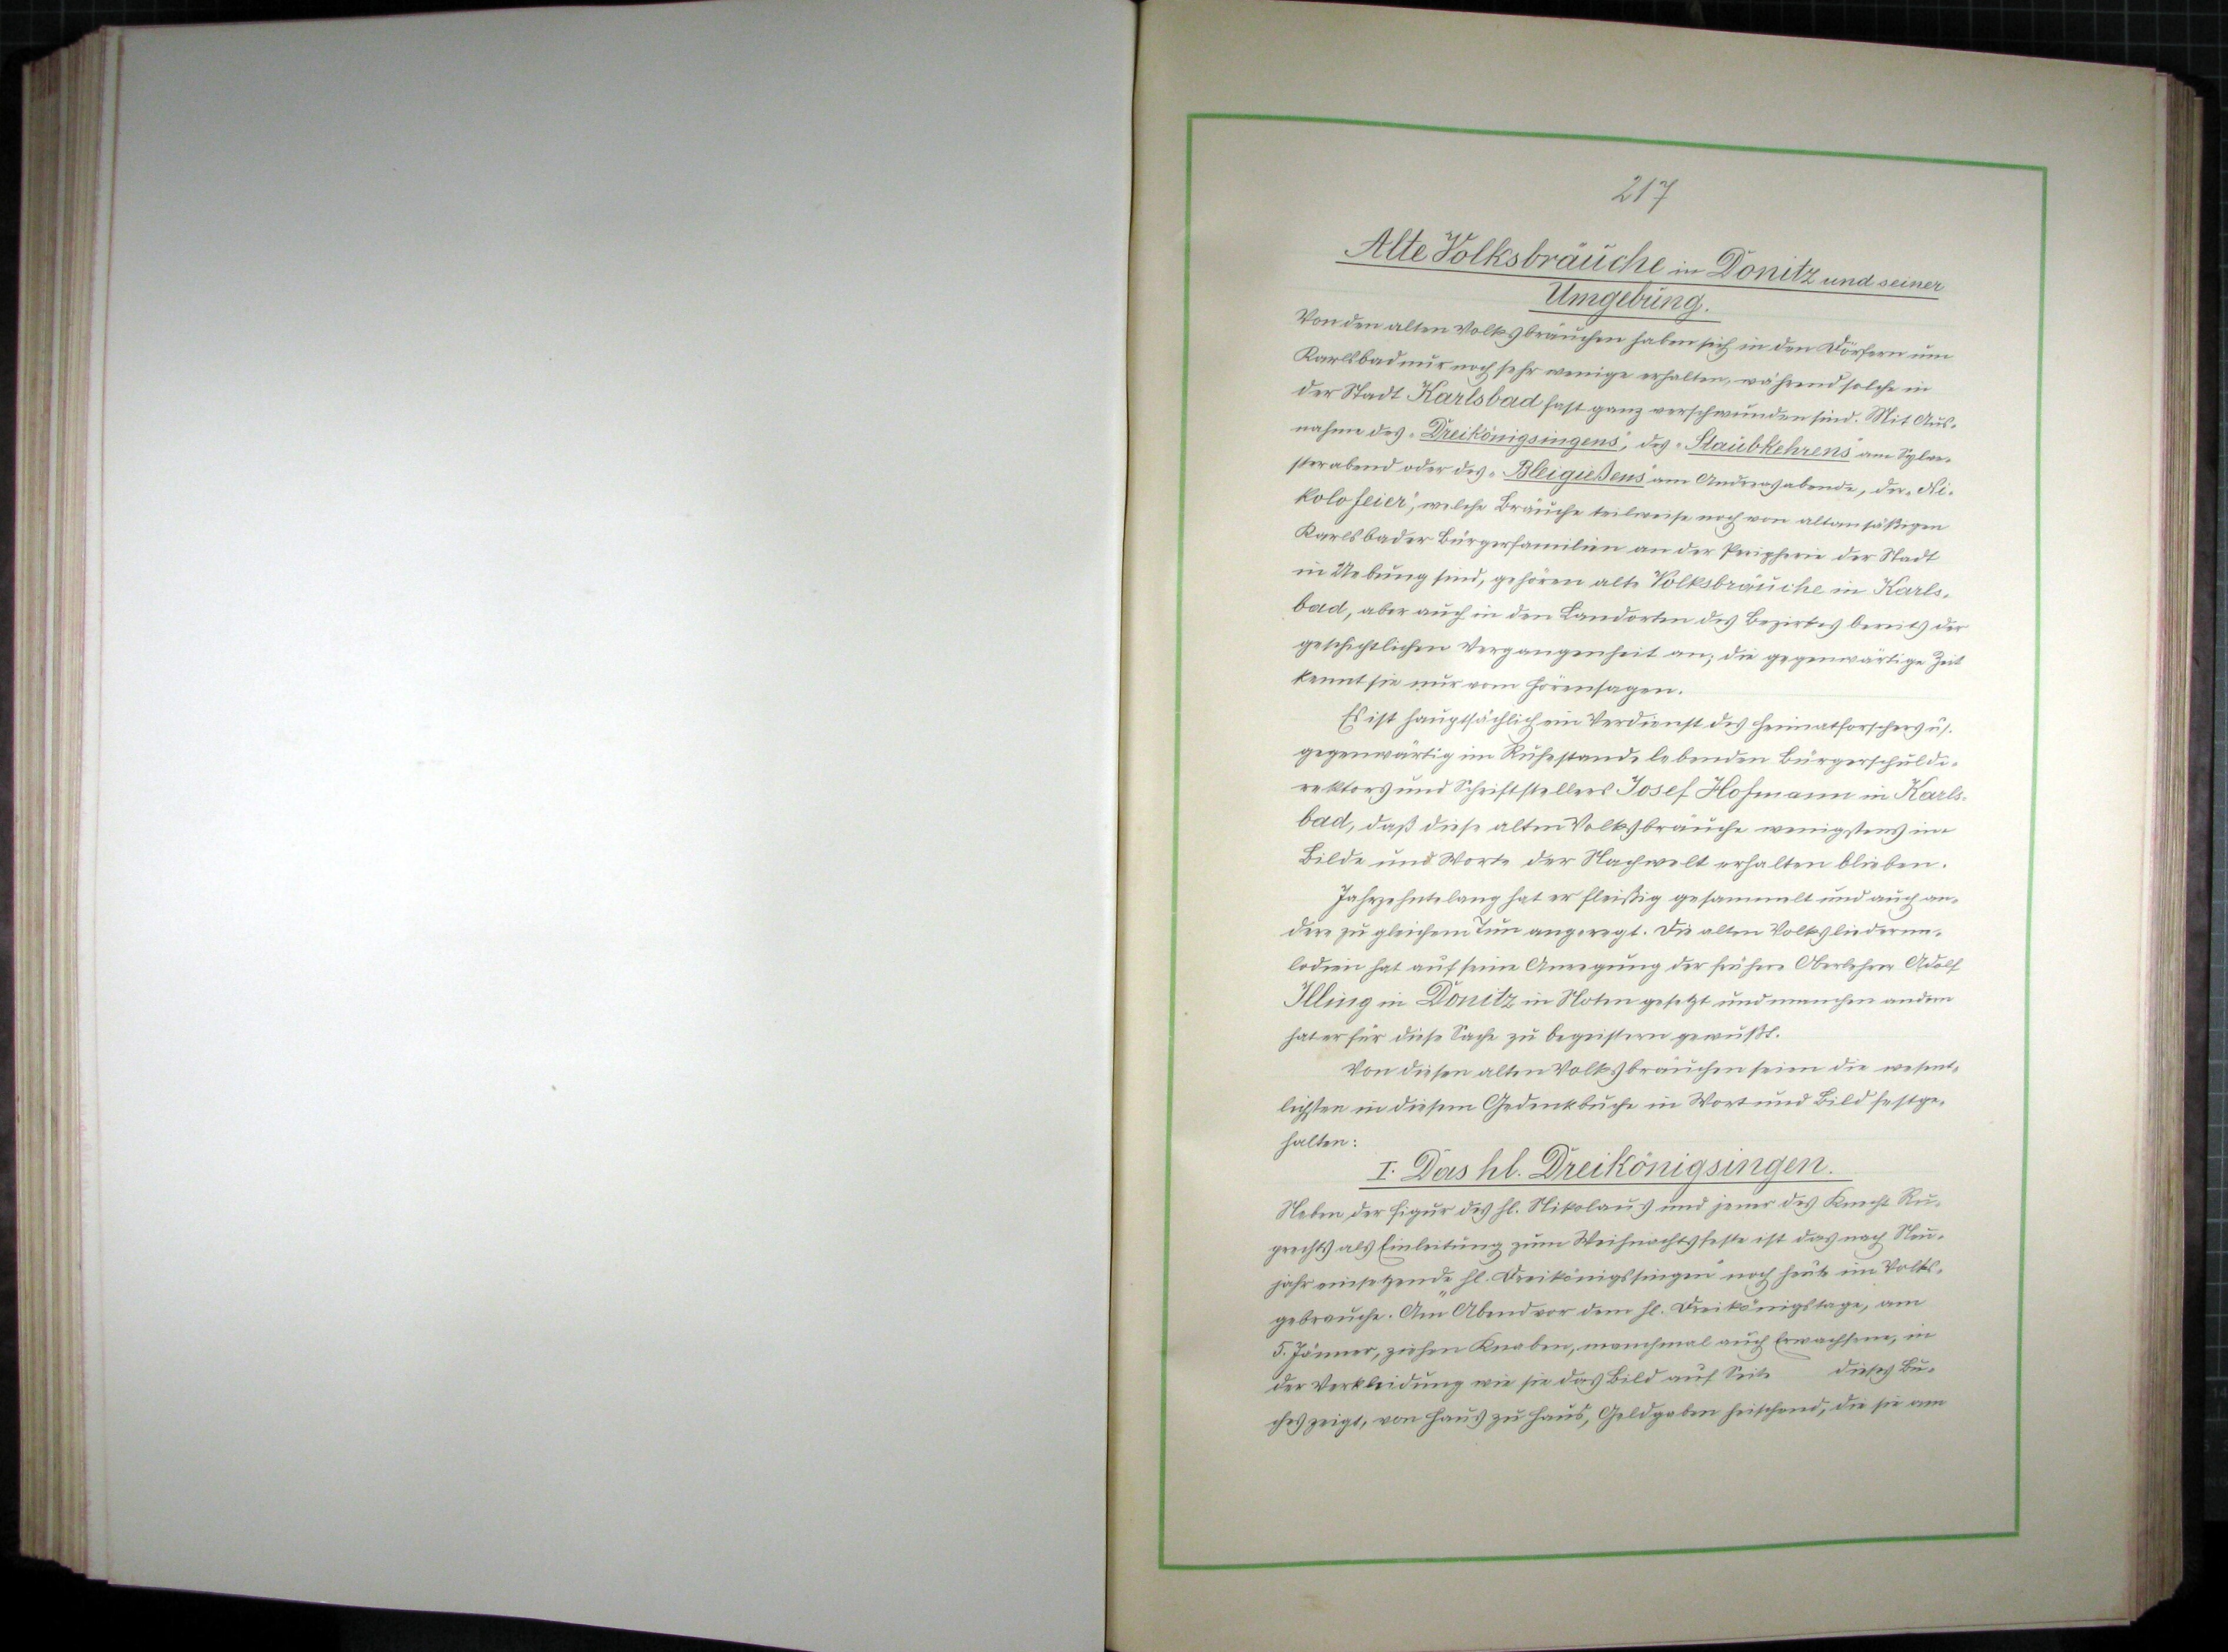 217
Alte Volksbräuche in Donitz und seiner
Umgebung.
Von den alten Volksbräuchen haben sich in den Dörfern um
Karlsbad nur noch sehr wenige erhalten, während solche in
der Stadt Karlsbad fast ganz verschwunden sind. Mit Aus-
nahme des „Dreikönigsingens", des „Staubkehrens" am Sylve-
sterabend oder des „Bleigießens" am Andreasabende, der „Ni-
kolofeier", welche Bräuche teilweise noch von altansäßigen
Karlsbader Bürgerfamilien an der Peripherie der Stadt
in Uebung sind, gehören alte Volksbräuche in Karls-
bad, aber auch in den Landorten des Bezirkes bereits der
geschichtlichen Vergangenheit an; die gegenwärtige Zeit
kennt sie nur vom Hörensagen.
Es ist hauptsächlich ein Verdienst des Heimatforschers u.
gegenwärtig im Ruhestande lebenden Bürgerschuldi-
rektors und Schriftstellers Josef Hofmann in Karls-
bad, daß diese alten Volksbräuche wenigstens im
Bilde und Worte der Nachwelt erhalten blieben.
Jahrzehntelang hat er fleißig gesammelt und auch an-
dere zu gleichem Tun angeregt. Die alten Volksliederme-
lodien hat auf seine Anregung der frühere Oberlehrer Adolf
Illing in Donitz in Noten gesetzt und manchen andern
hat er für diese Sache zu begeistern gewußt.
Von diesen alten Volksbräuchen seien die wesent-
lichsten in diesem Gedenkbuche in Wort und Bild festge-
halten:
I. Das hl. Dreikönigsingen.
Neben der Figur des hl. Nikolaus und jener des Knecht Ru-
prechts als Einleitung zum Weihnachtsfeste ist das nach Neu-
jahr einsetzende „hl. Dreikönigssingen" noch heute im Volks-
gebrauche. Am Abend vor dem hl. Dreikönigstage, am
5. Jänner, ziehen Knaben, manchmal auch Erwachsene, in
der Verkleidung wie sie das Bild auf Seite dieses Bu-
ches zeigt, von Haus zu Haus, Geldgaben heischend, die sie am